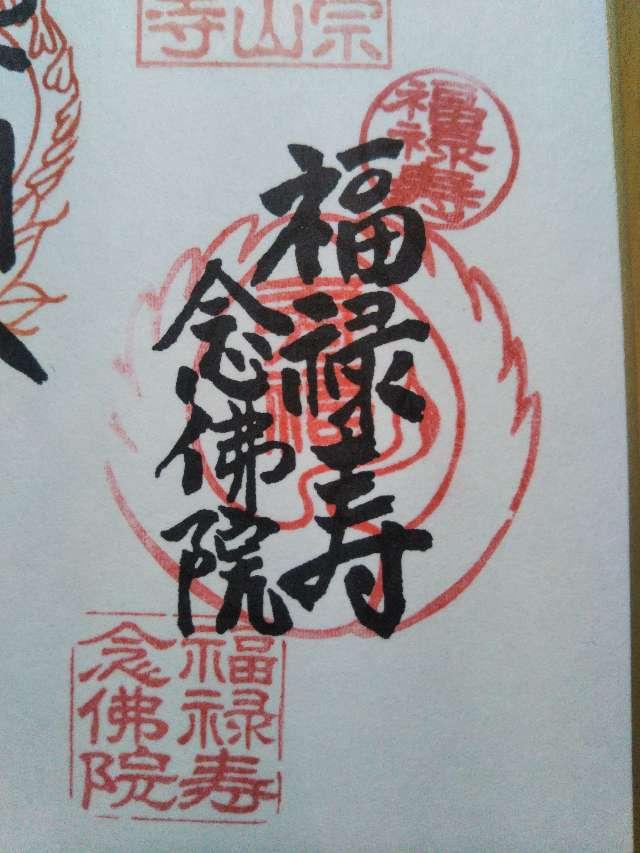 宗山寺
福禄寿
福禄寿
念佛院
福禄寿
念佛院